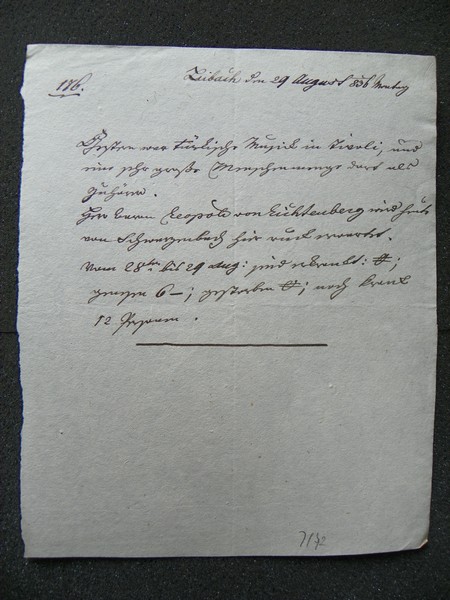 176.
Laibach den 29 August 836 Montag
Gestern war türkische Musick in Tivoli, und
eine sehr große Menschenmenge dort als
Zuhörer.
Herr Baron Leopold von Lichtenberg wird heute
von Schwarzenbach hier erwartet.
Vom 28ten bis 29 Aug: sind erkrankt: 0;
genesen 6 –; gestorben 0; noch krank
12 Personen.
7172